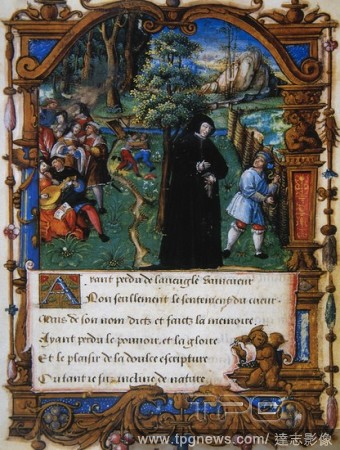 Ayant perdu de laueugle
Non seullement le sentiment du cueur.
Mais de son nom dictz et faictz la memoire
Ayant perdu le pouuoir, et la gloire
Et le plaisir de la doulce escripture
Ou tant ie fuz incline de nature.
TPG
www.tpgnews.com/ 達志影像